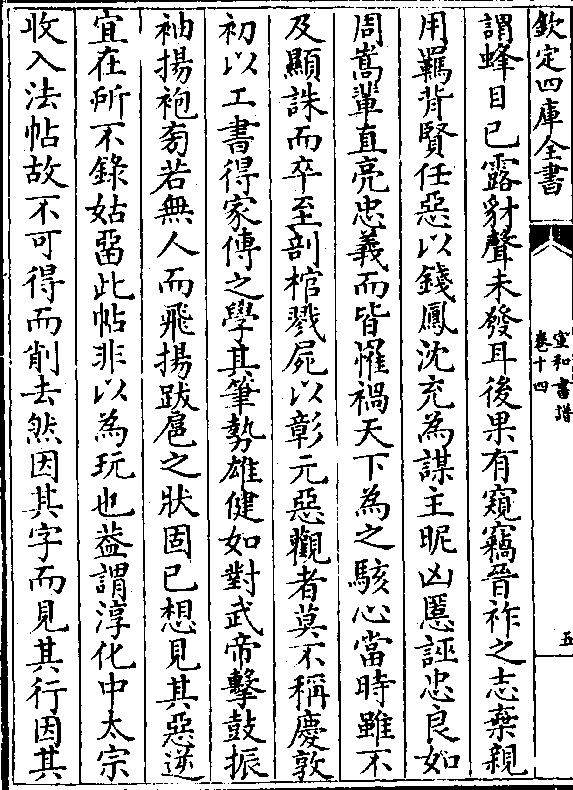 欽定四庫全書
宣和書譜
卷十四
五
謂蜂目已露豺聲未發耳後果有窺竊晉祚之志棄親
用羈背賢任惡以錢鳳沈充為謀主昵凶慝誣忠良如
周嵩輩直亮忠義而皆懼禍天下為之駭心當時雖不
及顯誅而卒至剖棺戮屍以彰元惡觀者莫不稱慶敦
初以工書得家傳之學其筆勢雄健如對武帝擊鼓振
袖揚袍旁若無人而飛揚跋扈之狀固已想見其惡逆
宜在所不錄姑畱此帖非以為玩也葢謂淳化中太宗
收入法帖故不可得而削去然因其字而見其行因其